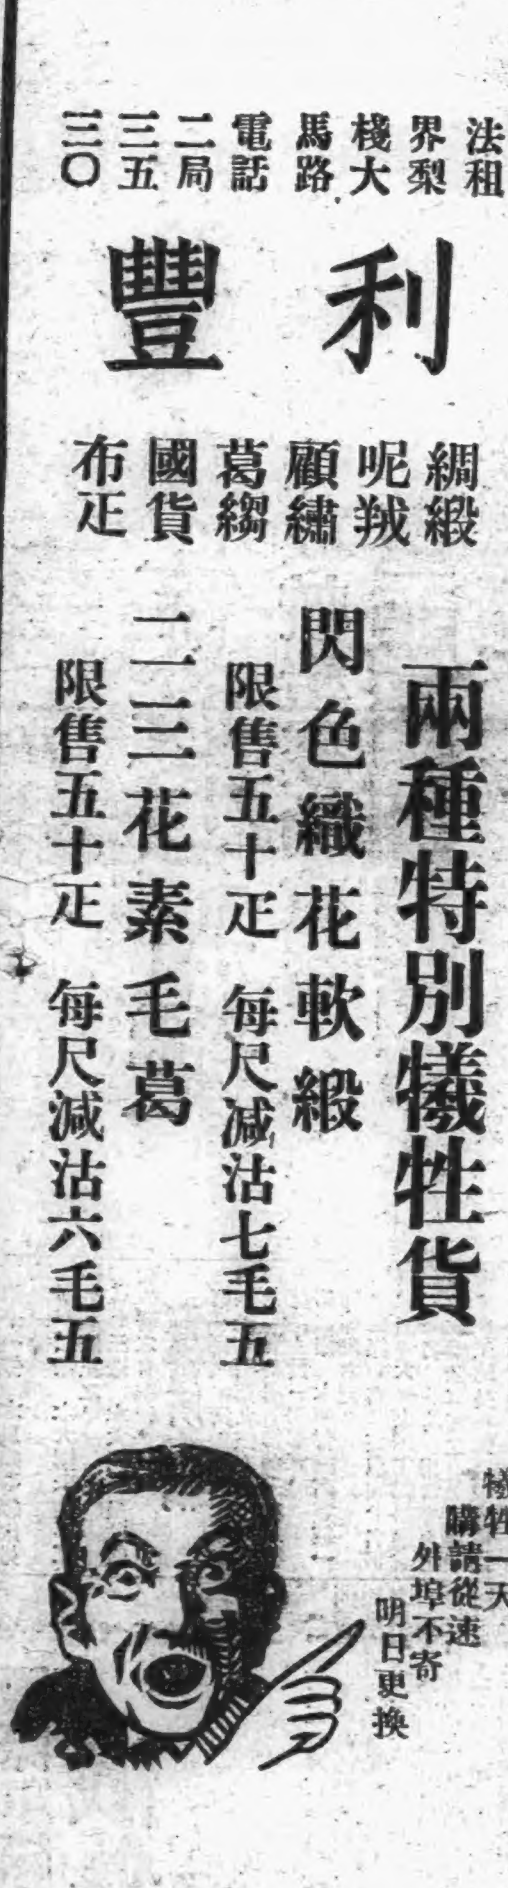 法租界梨棧大馬路電話二局三五三〇
利豐
綢緞呢羢顧繡葛縐國貨布疋
兩種特別犧牲貨
閃色織花軟緞
限售五十疋 每尺減沽七毛五
二二三花素毛葛
限售五十疋 每尺減沽六毛五
犧牲一天
購請從速
外埠不寄
明日更換